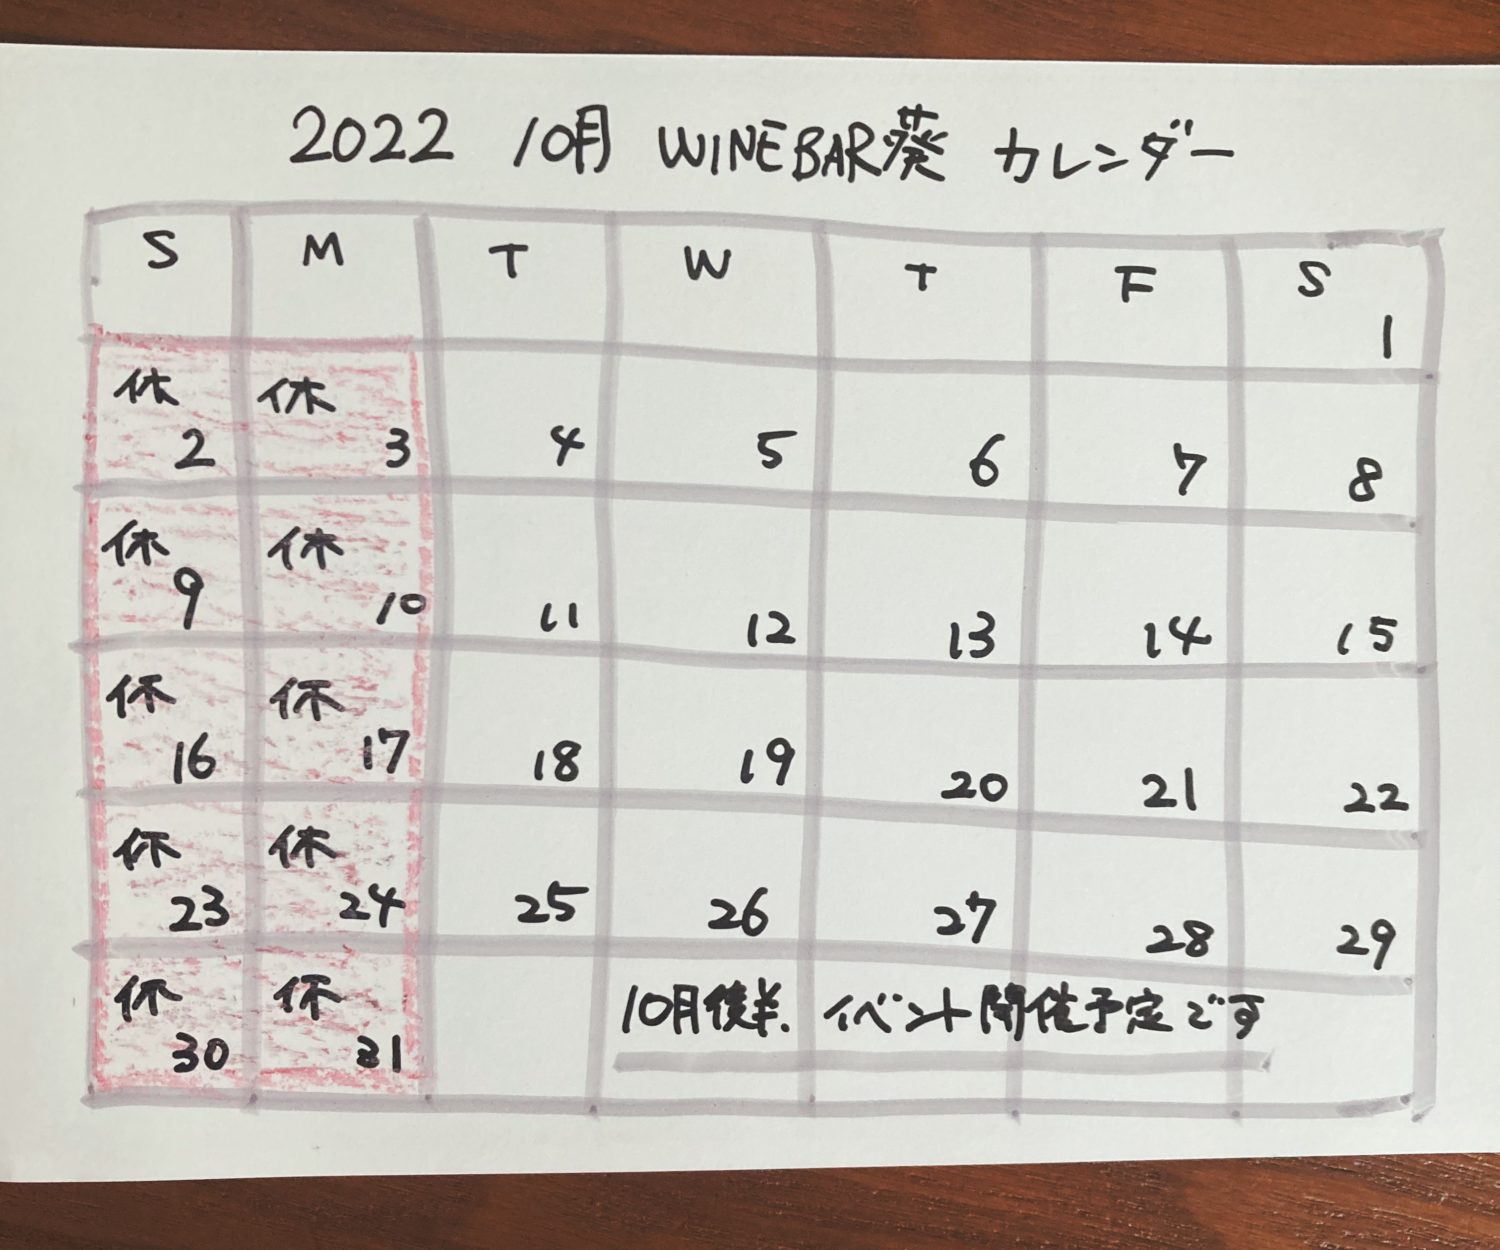 2022 10月 WINEBAR葵 カレンダー
S M T W T F S
1
休 休
2 3 4 5 6 7 8
休 休
9 10 11 12 13 14 15
休 休
16 17 18 19 20 21 22
休 休
23 24 25 26 27 28 29
休 休 10月後半. イベント開催予定です
30 31